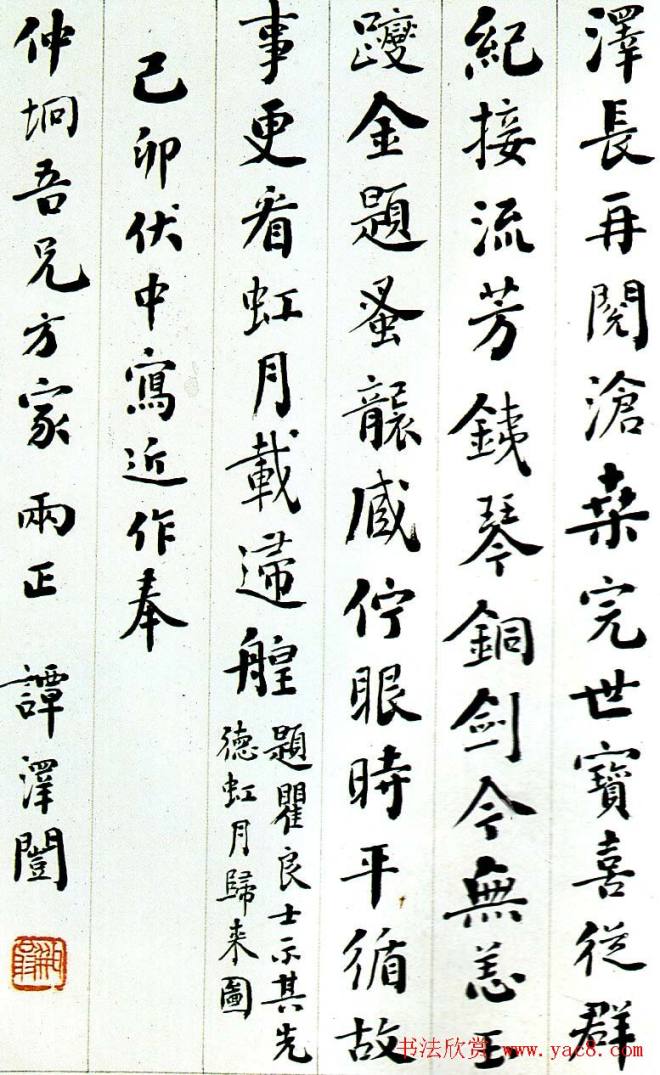 澤長再閱滄桑完世寶喜從群
紀接流芳銕琴銅劍今無恙玉
躞金題蚤襲臧佇眼時平循故
事更看虹月載歸艎
題瞿良士示其先
德虹月歸来圖
己卯伏中寫近作奉
仲坰吾兄方家兩正 譚澤闓
书法欣赏 www.yac8.com